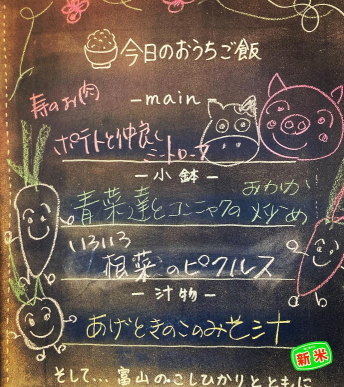 今日のおうちご飯
寿のお肉
-main-
ポテトと仲良し
ミートローフ
-小鉢-
青菜達とコンニャクの炒め
いろいろ
根菜のピクルス
-汁物-
あげときのこのみそ汁
新米
そして…富山のこしひかりとともに